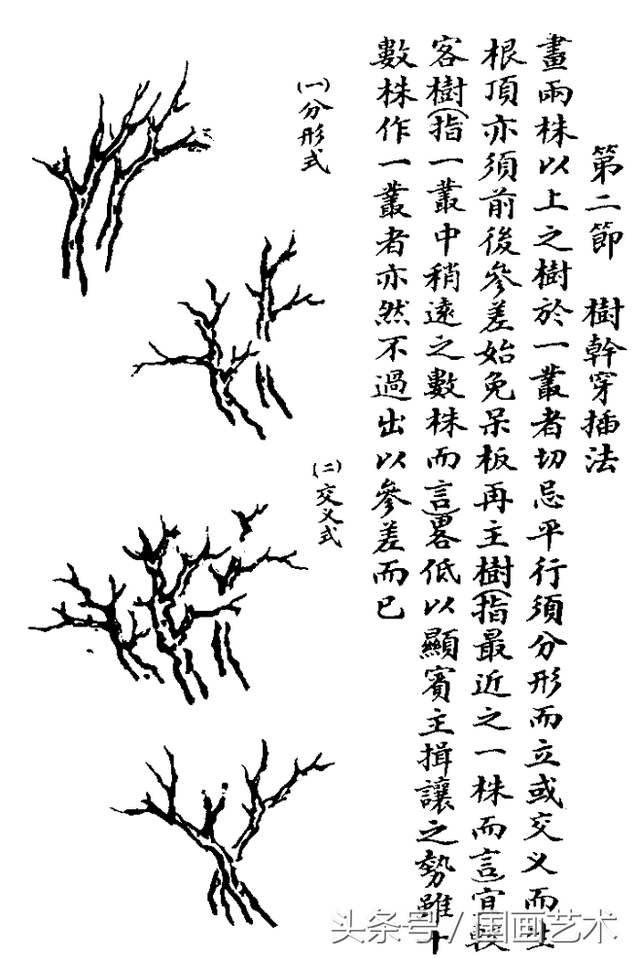 第二節　樹幹穿插法
畫兩株以上之樹於一叢者切忌平行須分形而立或交义而生
根頂亦須前後參差始免呆板再主樹(指最近之一株而言)宜較
客樹(指一叢中稍遠之數株而言)畧低以顯賓主揖讓之勢雖十
數株作一叢者亦然不過出以參差而已
(一)分形式
(二)交义式
头条号 / 国画艺术